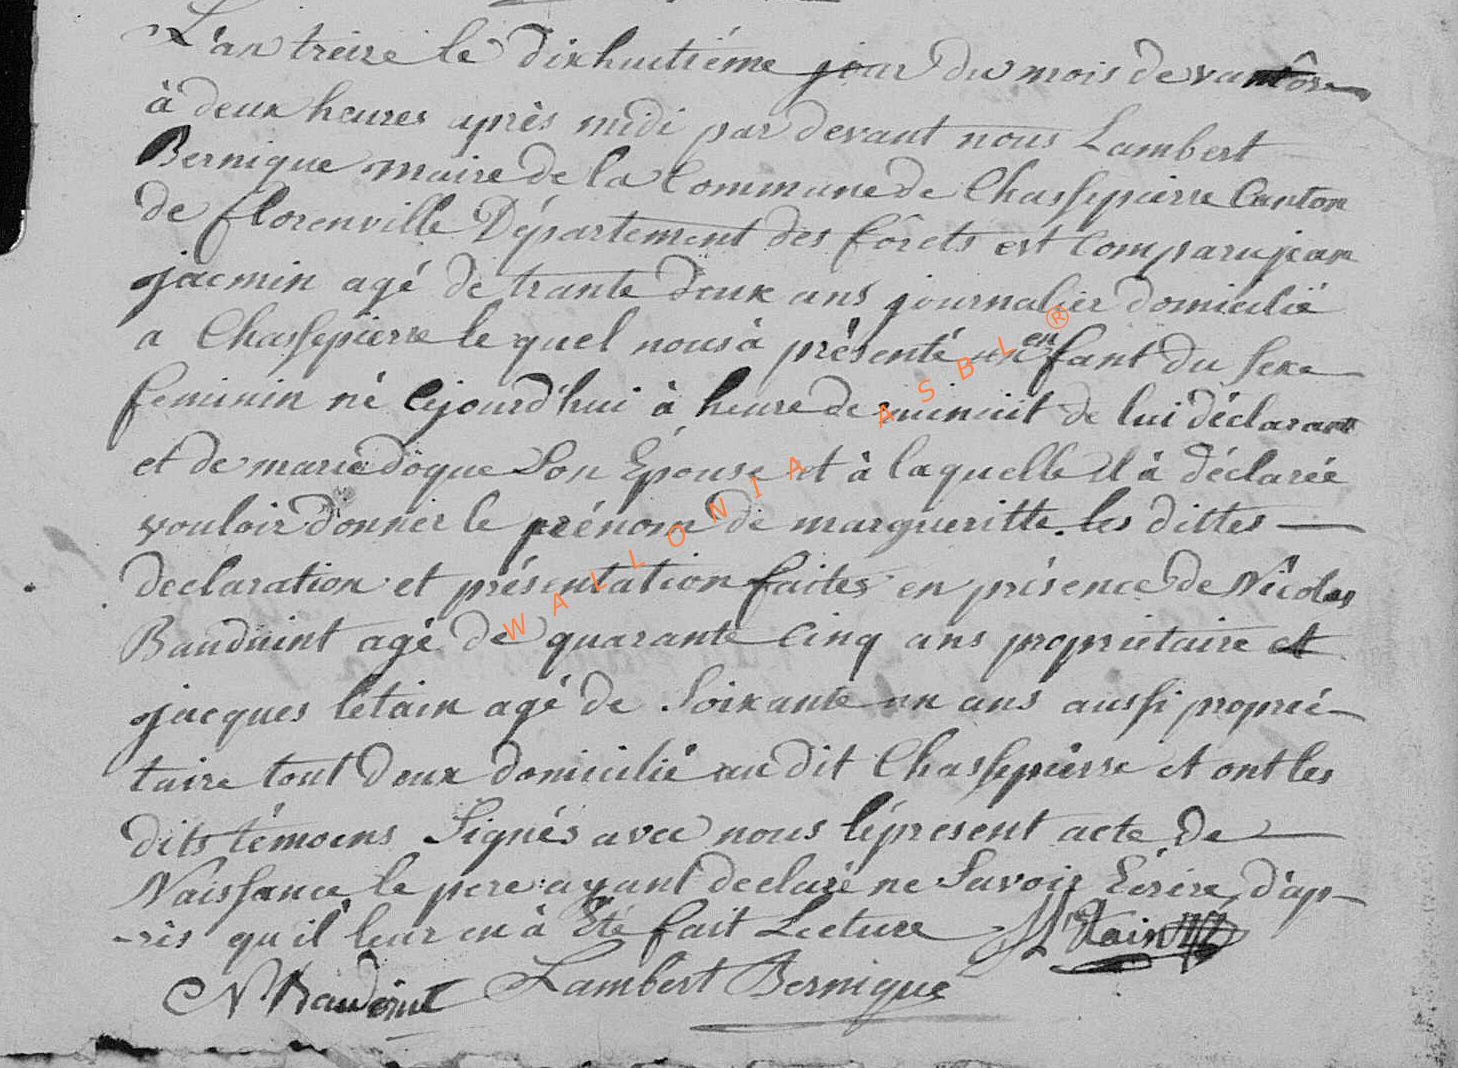 L'an treize le dixhuitiéme jour du mois de vantôse
à deux heures après midi par devant nous Lambert
Bernique maire de la Commune de Chassepierre Canton
de florenville Département des forêts est Comparu jean
jacmin agé de trante deux ans journalier domicilié
a Chassepierre le quel nous à présenté un enfant du sexe
feminin né Cejourd'hui à heure de minuit de lui déclarant
et de marie dôque Son Epouse et à laquelle il à déclarée
vouloir donner le prénom de margueritte. les dittes
declaration et présentation faites en présence de Nicolas
Bauduint agé de quarante Cinq ans propriétaire et
jacques letain agé de Soixante un ans aussi proprié-
taire tout deux domicilié au dit Chassepierre et ont les
dits témoins Signés avec nous léprésent acte de
Naissance le pere ayant declaré ne Savoir Ecrire, d'ap-
-rès qu'il leur en à Eté fait Lecture
N Bauduint Lambert Bernique
WALLONIA ASBL®